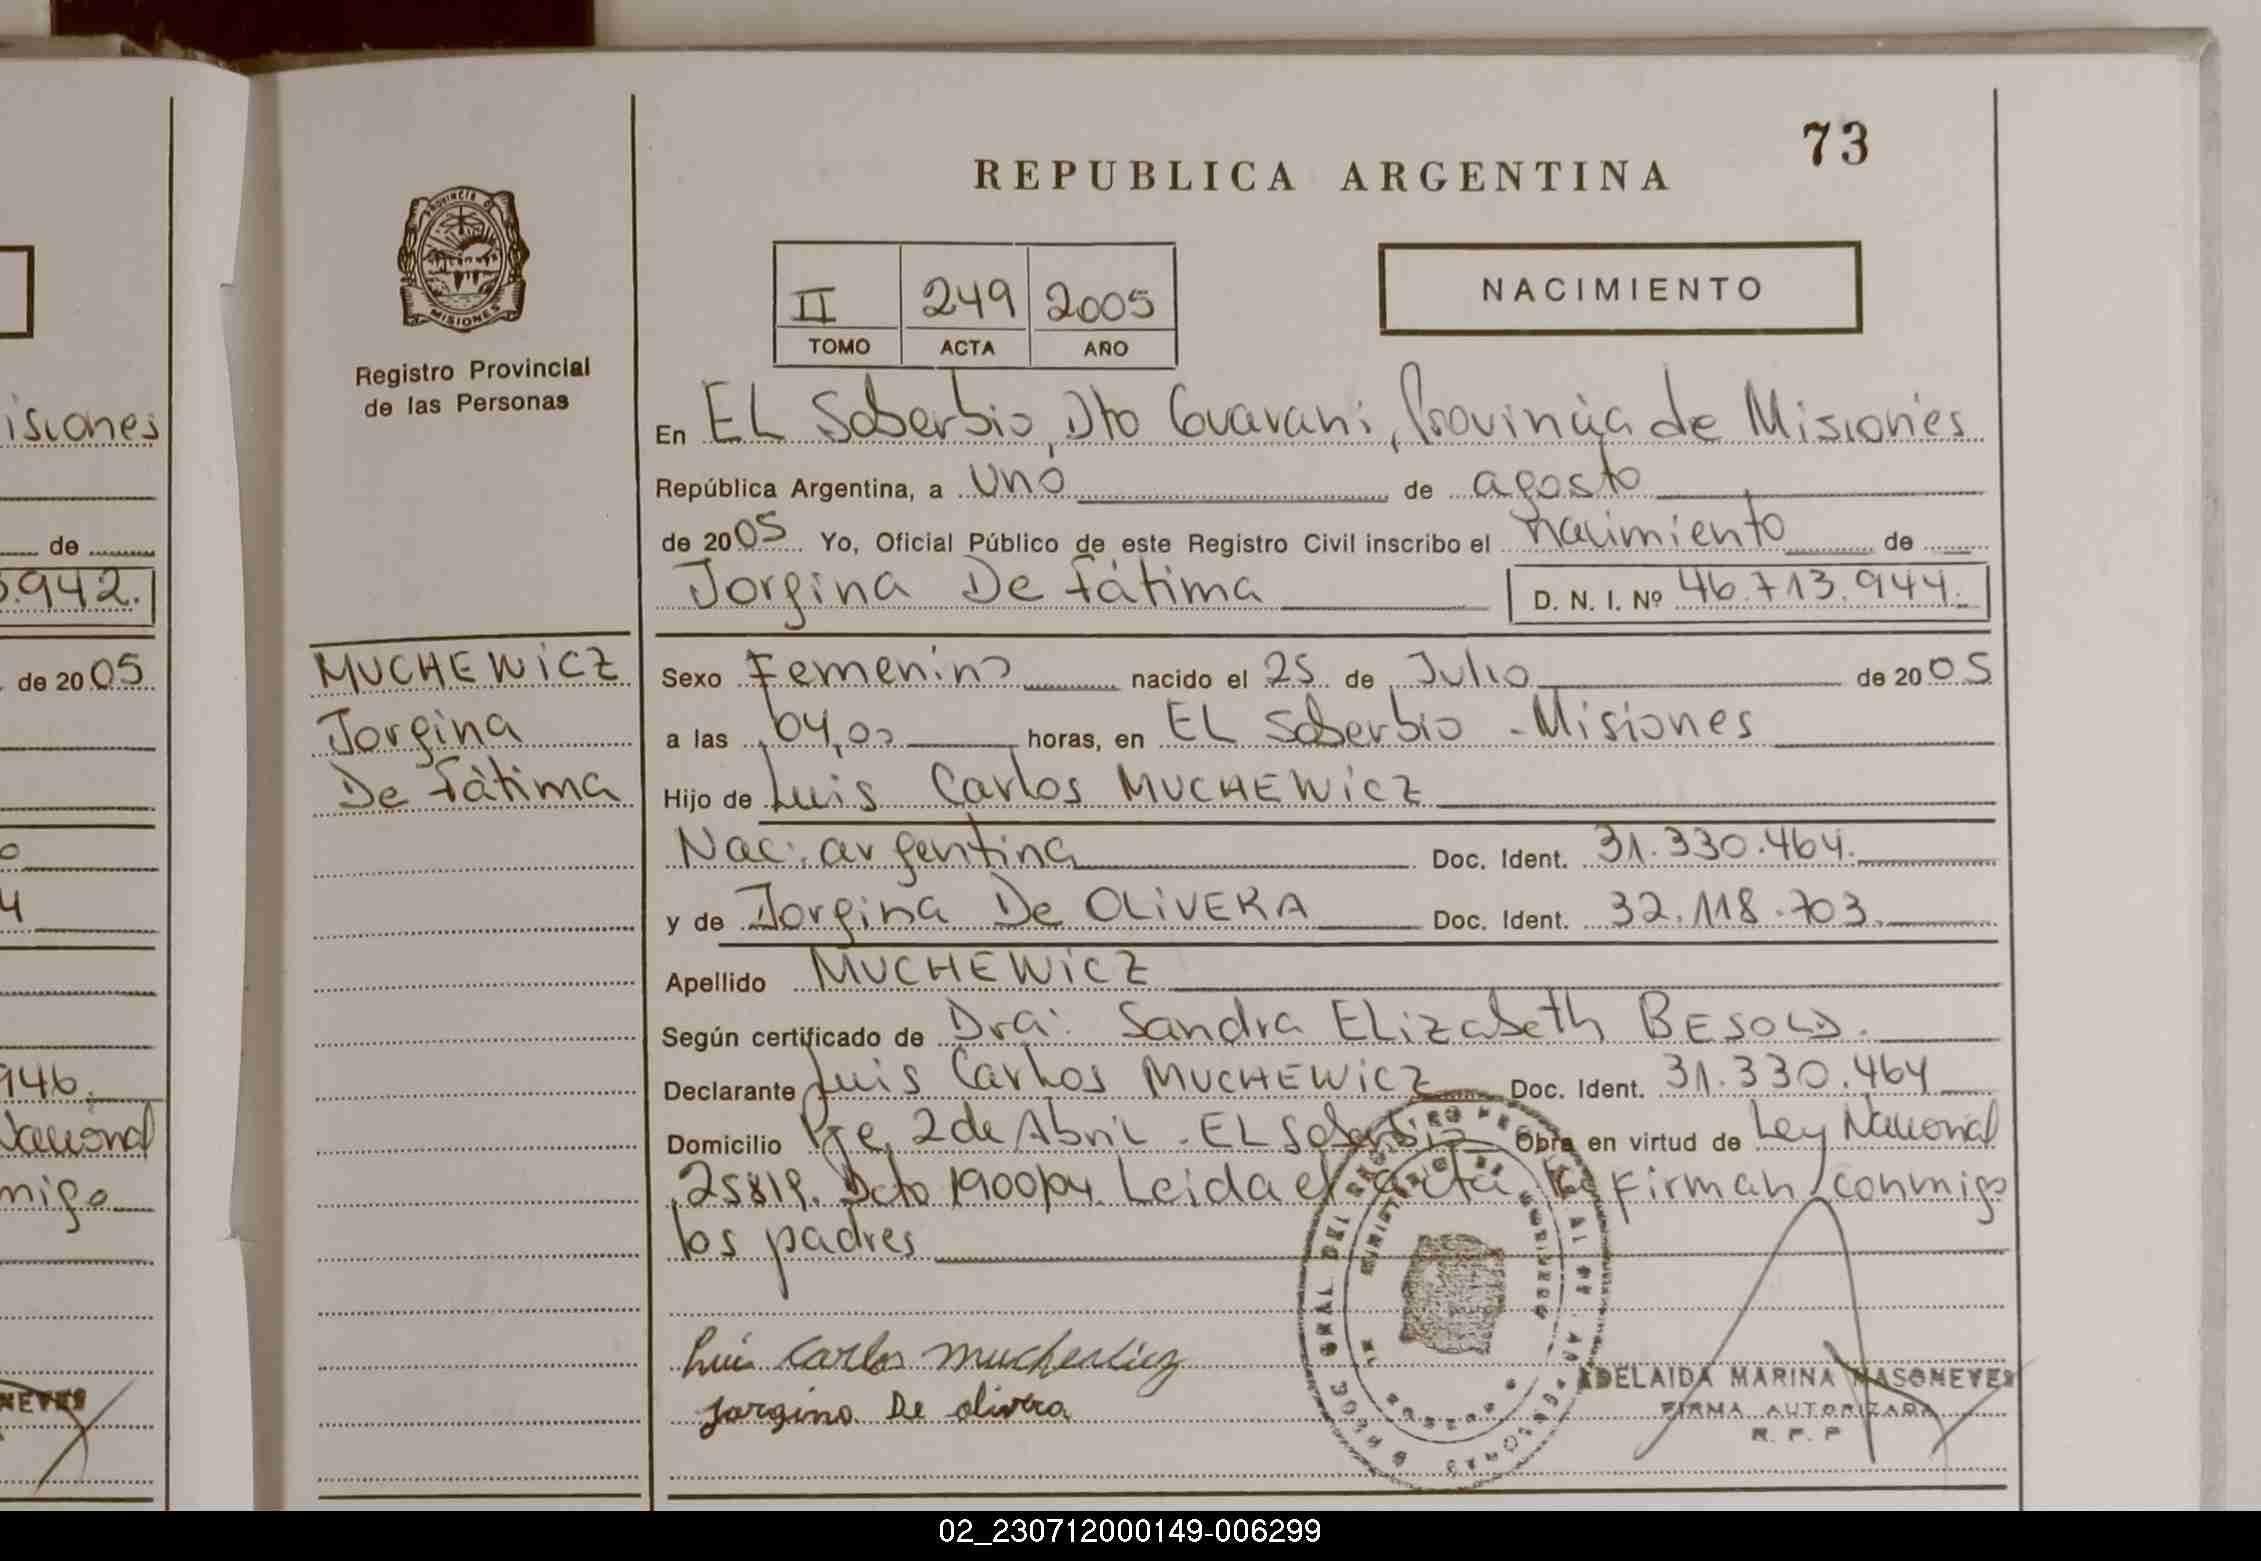 73
REPUBLICA ARGENTINA
PROVINCIA D
MISIONES
Registro Provincial
de las Personas
II 249 2005
TOMO ACTA AÑO
NACIMIENTO
En EL Soberbio, Dto Guarani, Provincia de Misiones
República Argentina, a uno de agosto
de 2005 Yo, Oficial Público de este Registro Civil inscribo el nacimiento de
Jorgina De Fátima D. N. I. Nº 46.713.944.
MUCHEWiCZ
Jorgina
De Fátima
Sexo Femenino nacido el 25 de Julio de 2005
a las 04,00 horas, en EL Soberbio - Misiones
Hijo de Luis Carlos MUCHEWiCZ
Nac. argentina Doc. Ident. 31.330.464.
y de Jorgina De OLiVERA Doc. Ident. 32.118.703.
Apellido MUCHEWiCZ
Según certificado de Dra. Sandra ELizabeth BESOLD.
Declarante Luis Carlos MUCHEWiCZ Doc. Ident. 31.330.464
Domicilio Pje 2 de Abril - EL Soberbio Obra en virtud de Ley Nacional
25819. Dcto 1900/04. Leida el acta la firman conmigo
los padres
Luis Carlos Muchewicz
Jorgina De olivera
ADELAIDA MARINA MASONEVES
FIRMA AUTORIZADA
R. P. P
isiones
de
.942.
de 2005
4
946.
Nacional
migo
NEVES
02_230712000149-006299